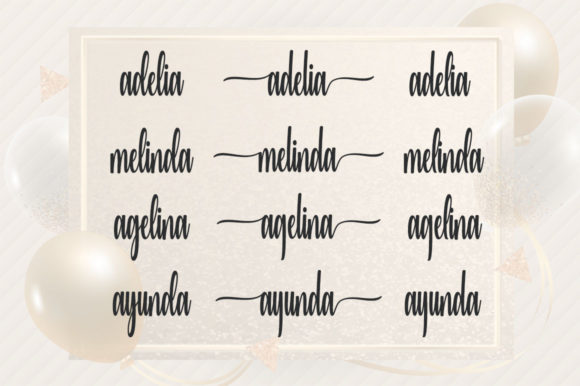 adelia adelia adelia
melinda melinda melinda
agelina agelina agelina
ayunda ayunda ayunda